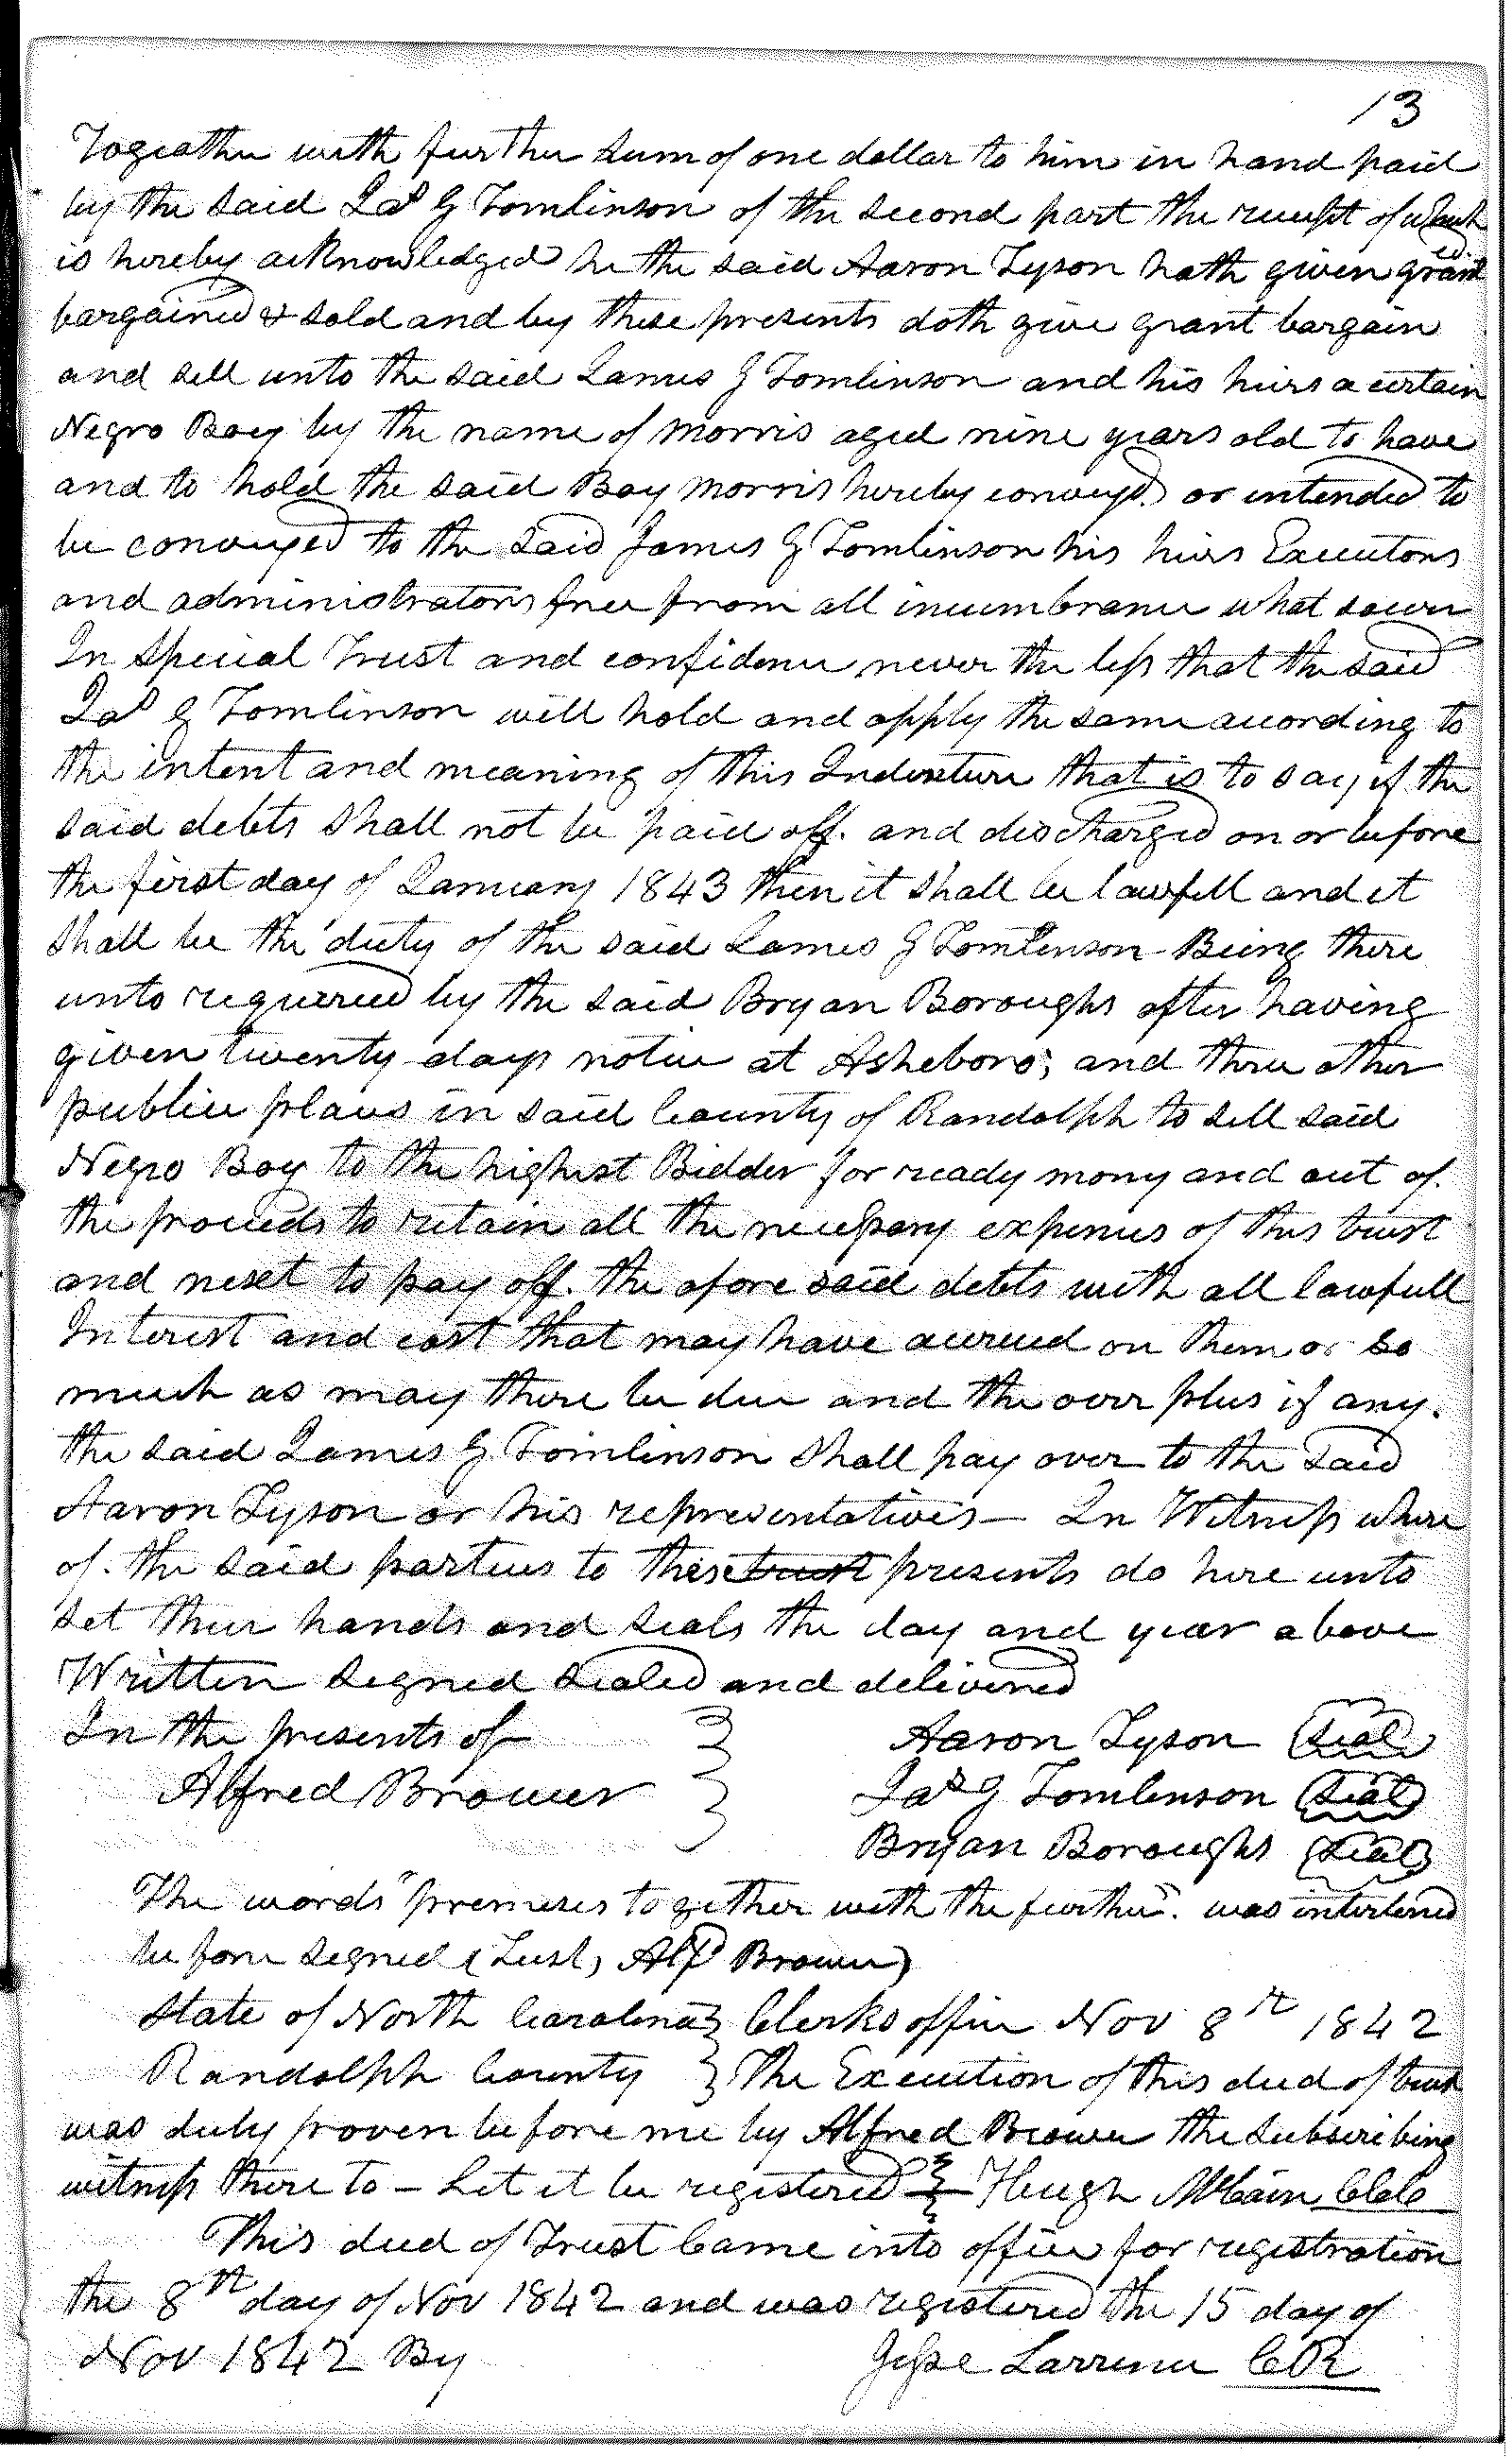 13
Togeather with further sum of one dollar to him in hand paid
by the said Jas G Tomlinson of the second part the receipt of which
is hereby acknowledged he the said Aaron Tyson hath given granted
bargained & sold and by these presents doth give grant bargain
and sell unto the said James G Tomlinson and his heirs a certain
Negro Boy by the name of Morris aged nine years old to have
and to hold the said Boy Morris hereby conveyd. or intended to
be conveyed to the said James G Tomlinson his heirs Executors
and administrators free from all incumbrance what soever
In Special Trust and confidence never the less that the said
Jas G Tomlinson will hold and apply the same according to
the intent and meaning of this Indenture that is to say if the
said debts shall not be paid off. and discharged on or before
the first day of January 1843 then it shall be lawfull and it
shall be the duty of the said James G Tomlinson Being there
unto required by the said Bryan Boroughs after having
given twenty days notice at Asheboro; and three other
public places in said County of Randolph to sell said
Negro Boy to the highest Bidder for ready mony and out of.
the proceeds to retain all the necessary expenses of this trust
and next to pay off. the afore said debts with all lawfull
Interest and cost that may have accrued on them or so
much as may there be due and the over plus if any.
the said James G Tomlinson shall pay over to the said
Aaron Tyson or his representatives — In Witness where
of. the said parties to these trust presents do here unto
set their hands and seals the day and year above
Written signed sealed and delivered
In the presents of } Aaron Tyson (Seal)
Alfred Brower } Jas G Tomlinson (Seal)
Bryan Boroughs (Seal)
The words "premises together with the further". was interlined
before signed (Test, Alfd Brower)
State of North Carolina } Clerks office Nov 8th 1842
Randolph County } The Execution of this deed of trust
was duly proven before me by Alfred Brower the subscribing
witness there to — Let it be registered } Hugh McCain CCC
This deed of Trust Came into office for registration
the 8th day of Nov 1842 and was registered the 15 day of
Nov 1842 By Jesse Larrence CR